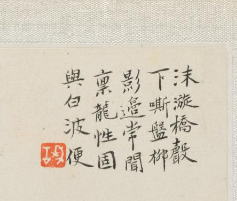 沫漩橋轂
下嘶盤柳
影邊常聞
稟龍性固
與白波便